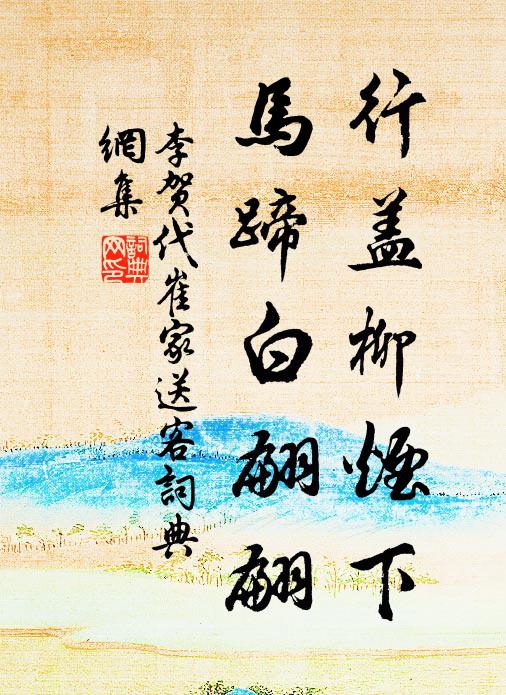 行蓋柳煙下
馬蹄白翩翩
李賀代崔家送客詞典
網集
詞典網印